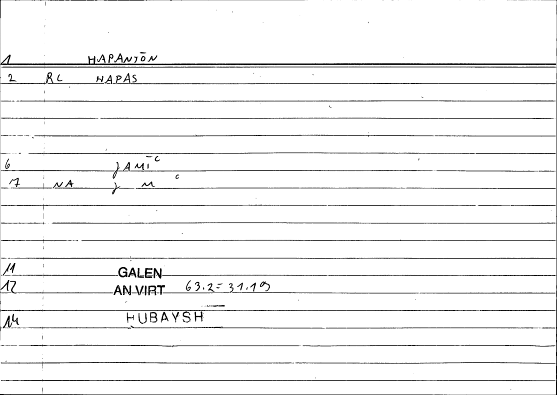 1 HAPANTŌN
2 RC HAPAS
6 ǧAMĪʿ
7 NA ǧ M ʿ
11 GALEN
12 AN VIRT 63.2 = 31.19
14 HUBAYSH